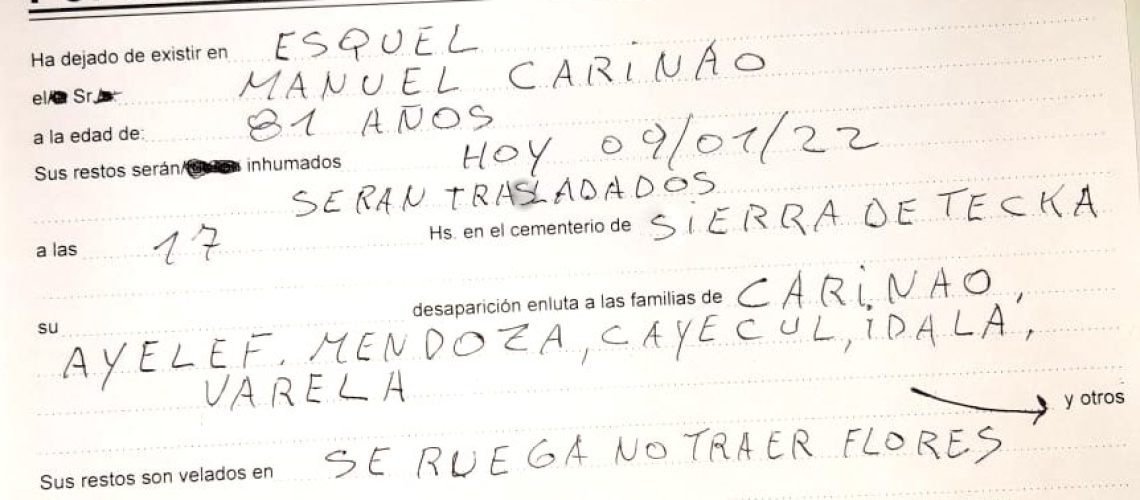 Ha dejado de existir en ESQUEL
el Sr. MANUEL CARiNAO
a la edad de: 81 AÑOS
Sus restos serán/ inhumados HOY 09/01/22
SERAN TRASLADADOS
a las 17 Hs. en el cementerio de SiERRA DE TECKA
su desaparición enluta a las familias de CARiNAO,
AYELEF. MENDOZA, CAYECUL, iDALA,
VARELA
y otros
Sus restos son velados en SE RUEGA NO TRAER FLORES